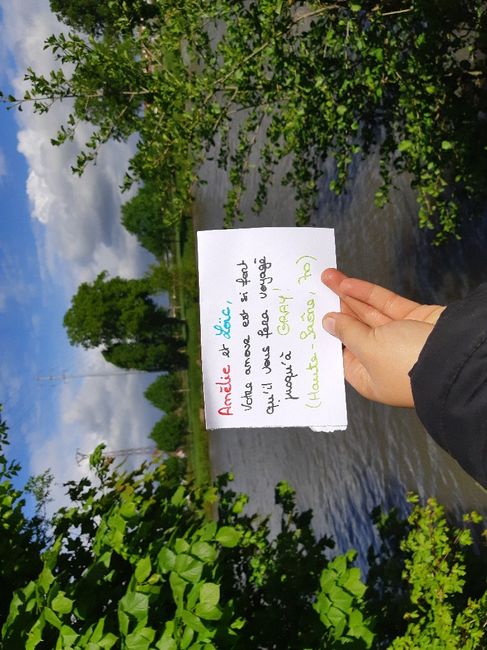 Amélie et Loïc,
Votre amour est si fort
qu'il vous fera voyagé
jusqu'à GRAY!
(Haute-Saône, 70)